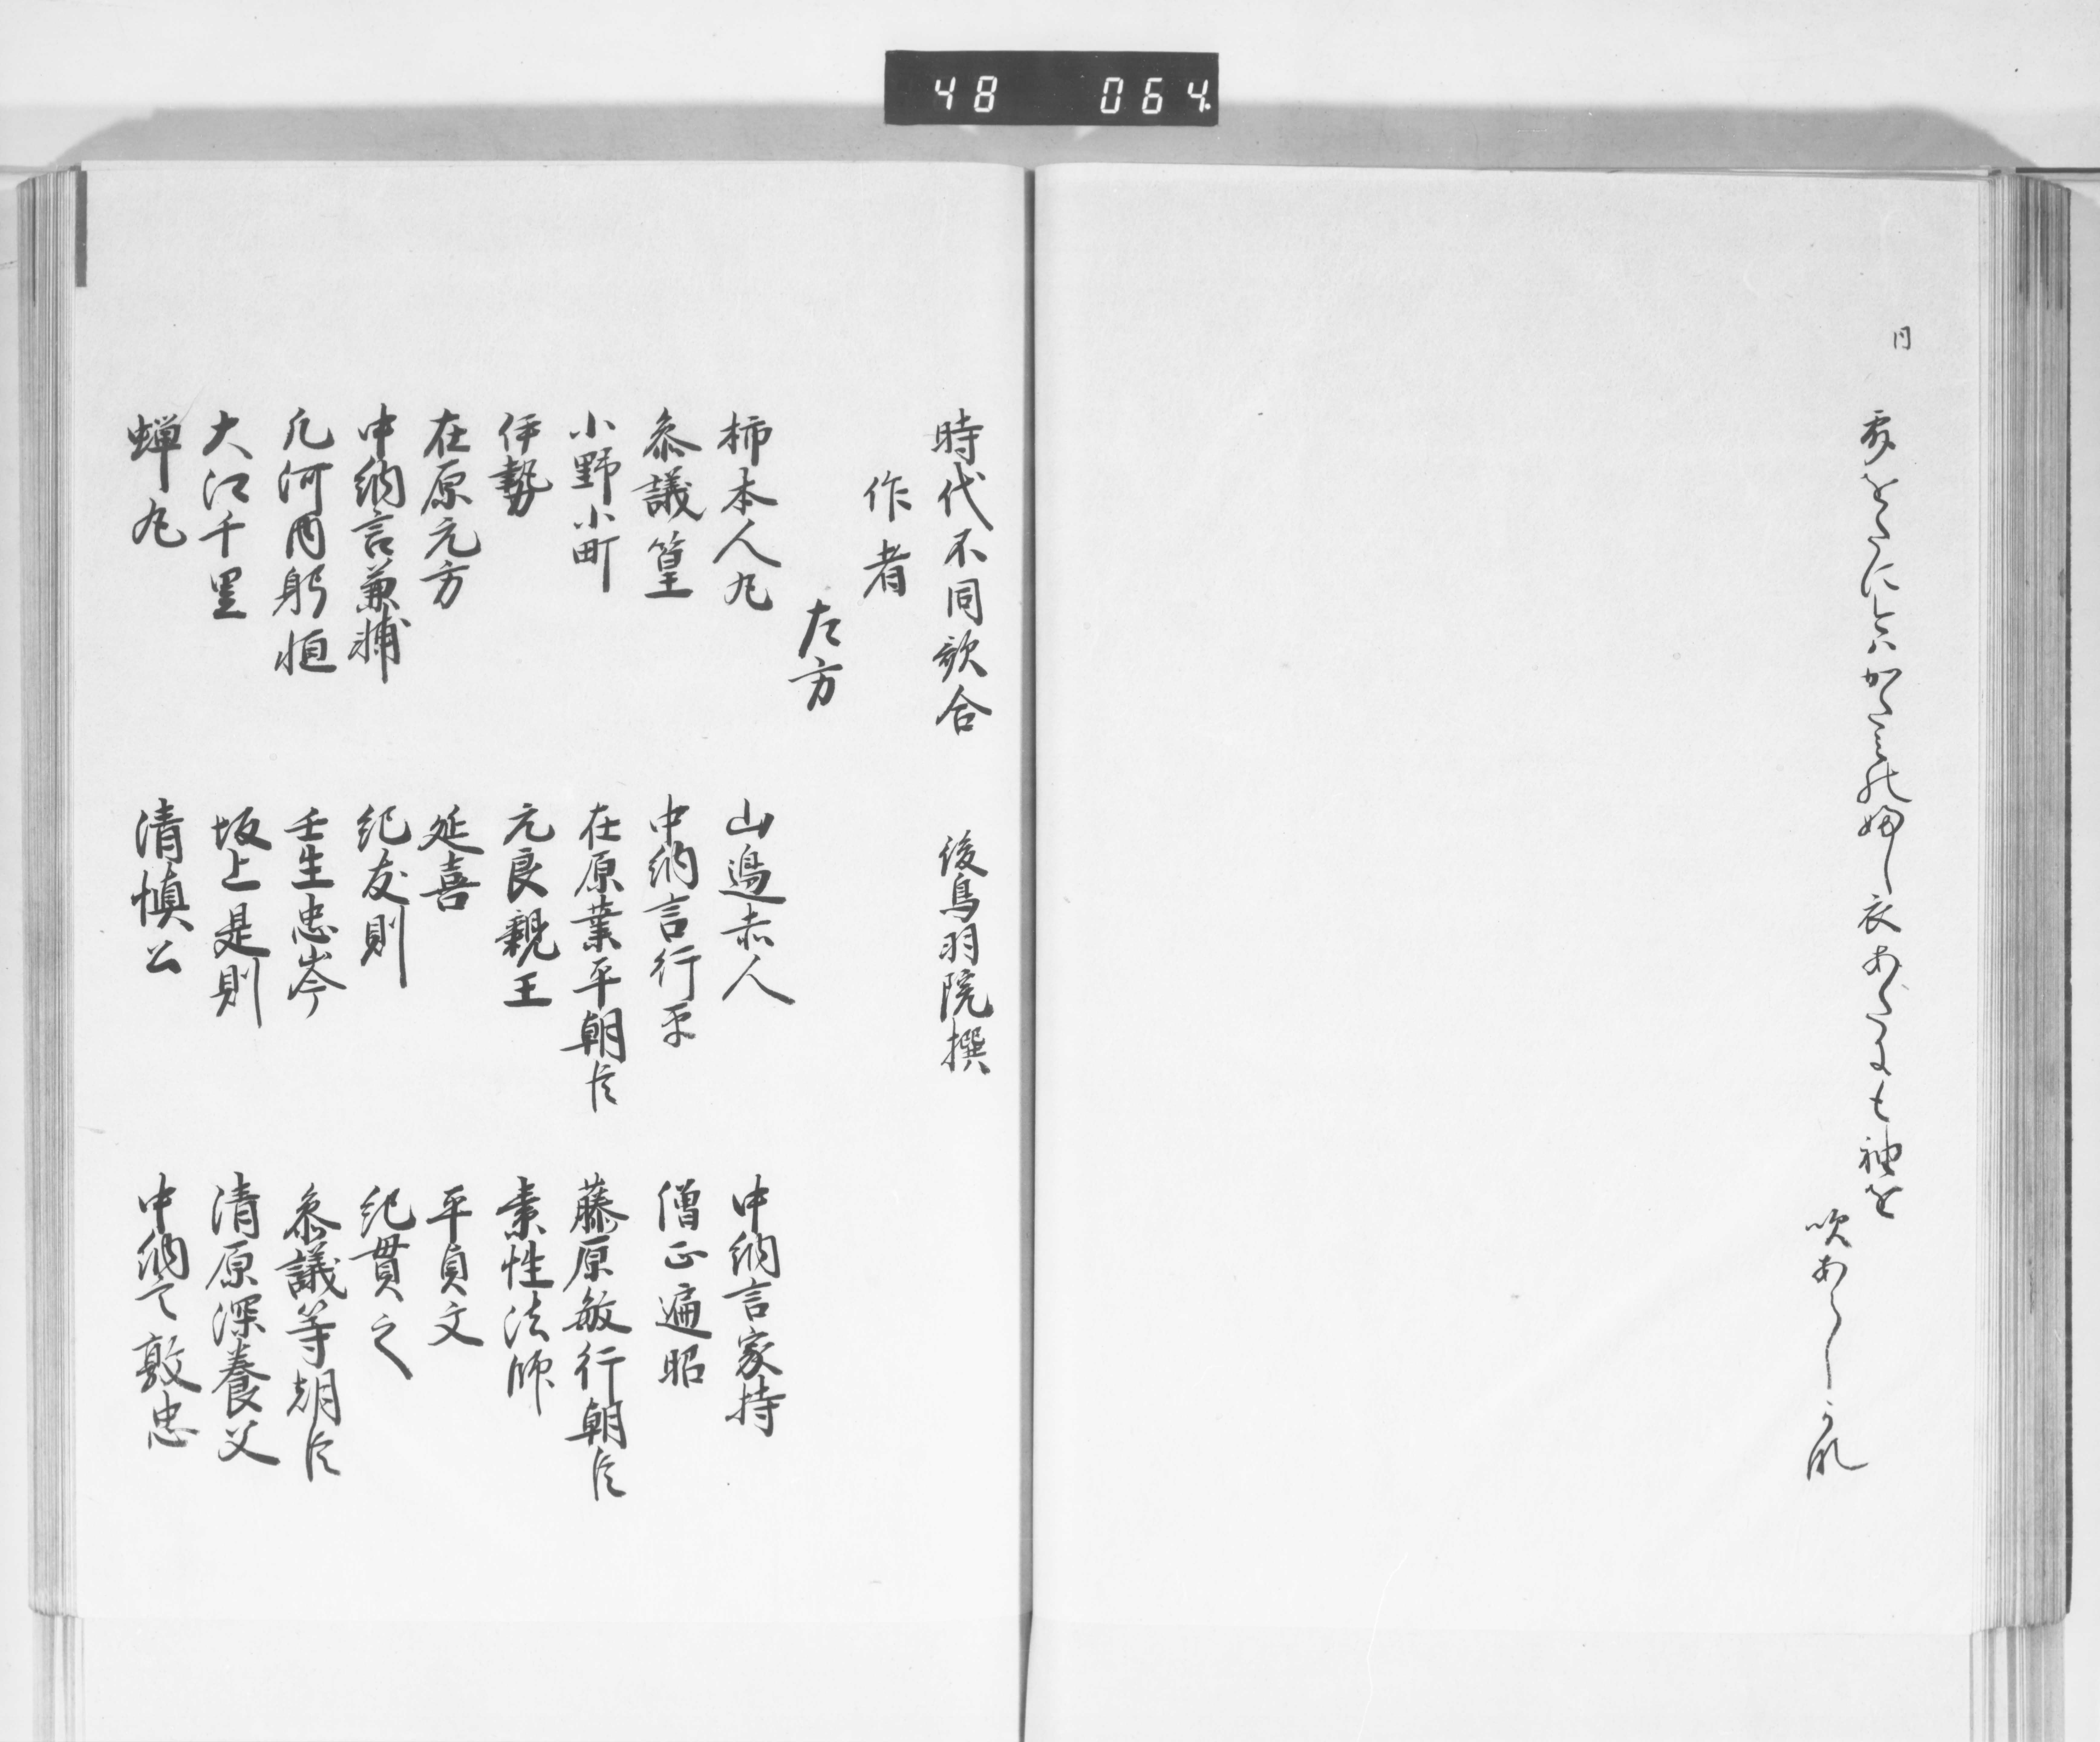 48 064
同
露をたに今ハかたみの婦し衣あたにも袖を
吹あらしかな
時代不同歌合 後鳥羽院撰
作者
左方
柿本人丸 山邊赤人 中納言家持
参議篁 中納言行平 僧正遍昭
小野小町 在原業平朝臣 藤原敏行朝臣
伊勢 元良親王 素性法師
在原元方 延喜 平貞文
中納言兼輔 紀友則 紀貫之
凡河内躬恒 壬生忠岑 参議等朝臣
大江千里 坂上是則 清原深養父
蝉丸 清慎公 中納言敦忠